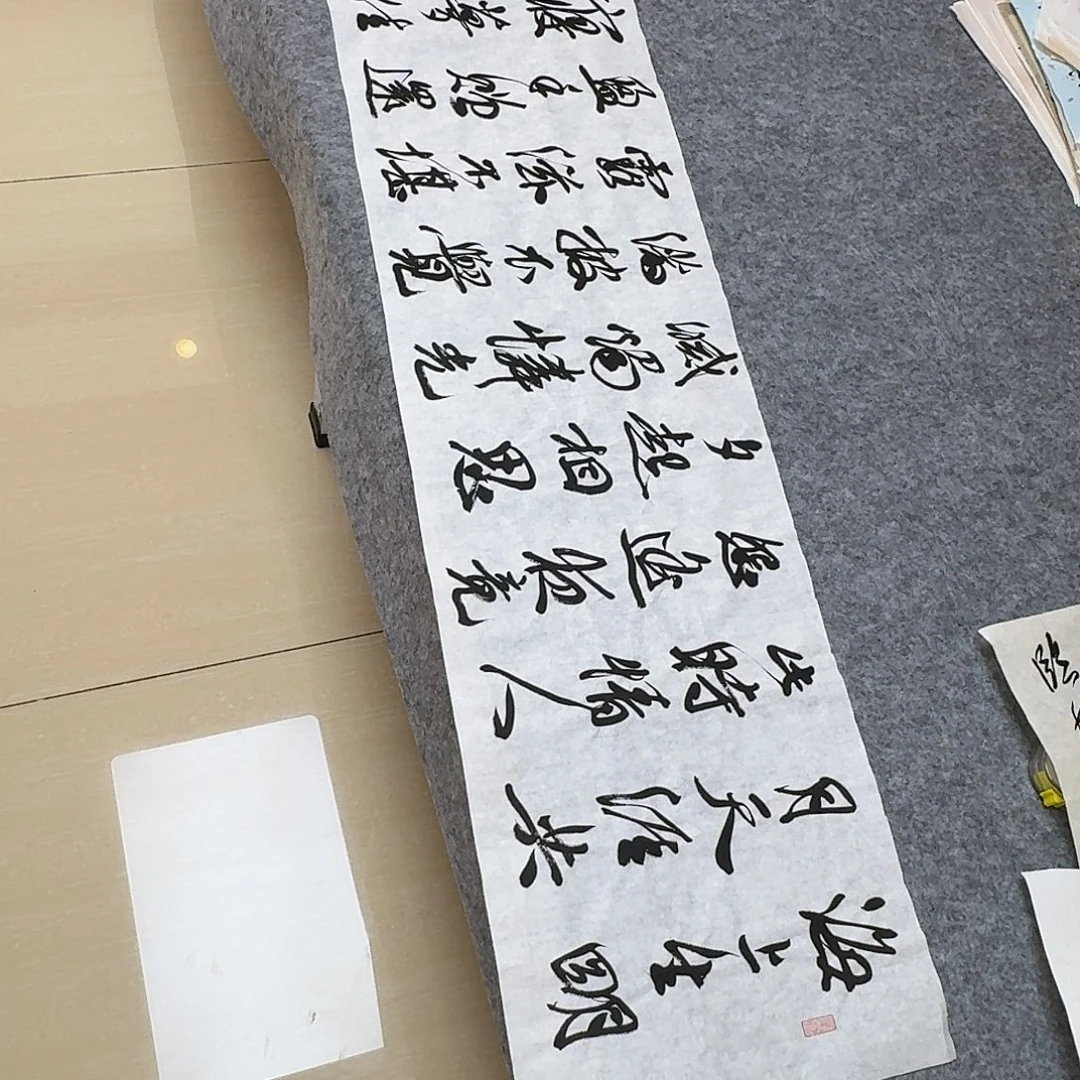 海上生明
月天涯共
此時情人
怨遥夜竟
夕起相思
滅燭憐光
滿披衣覺
露滋不堪
盈手贈還
寢夢佳
臨